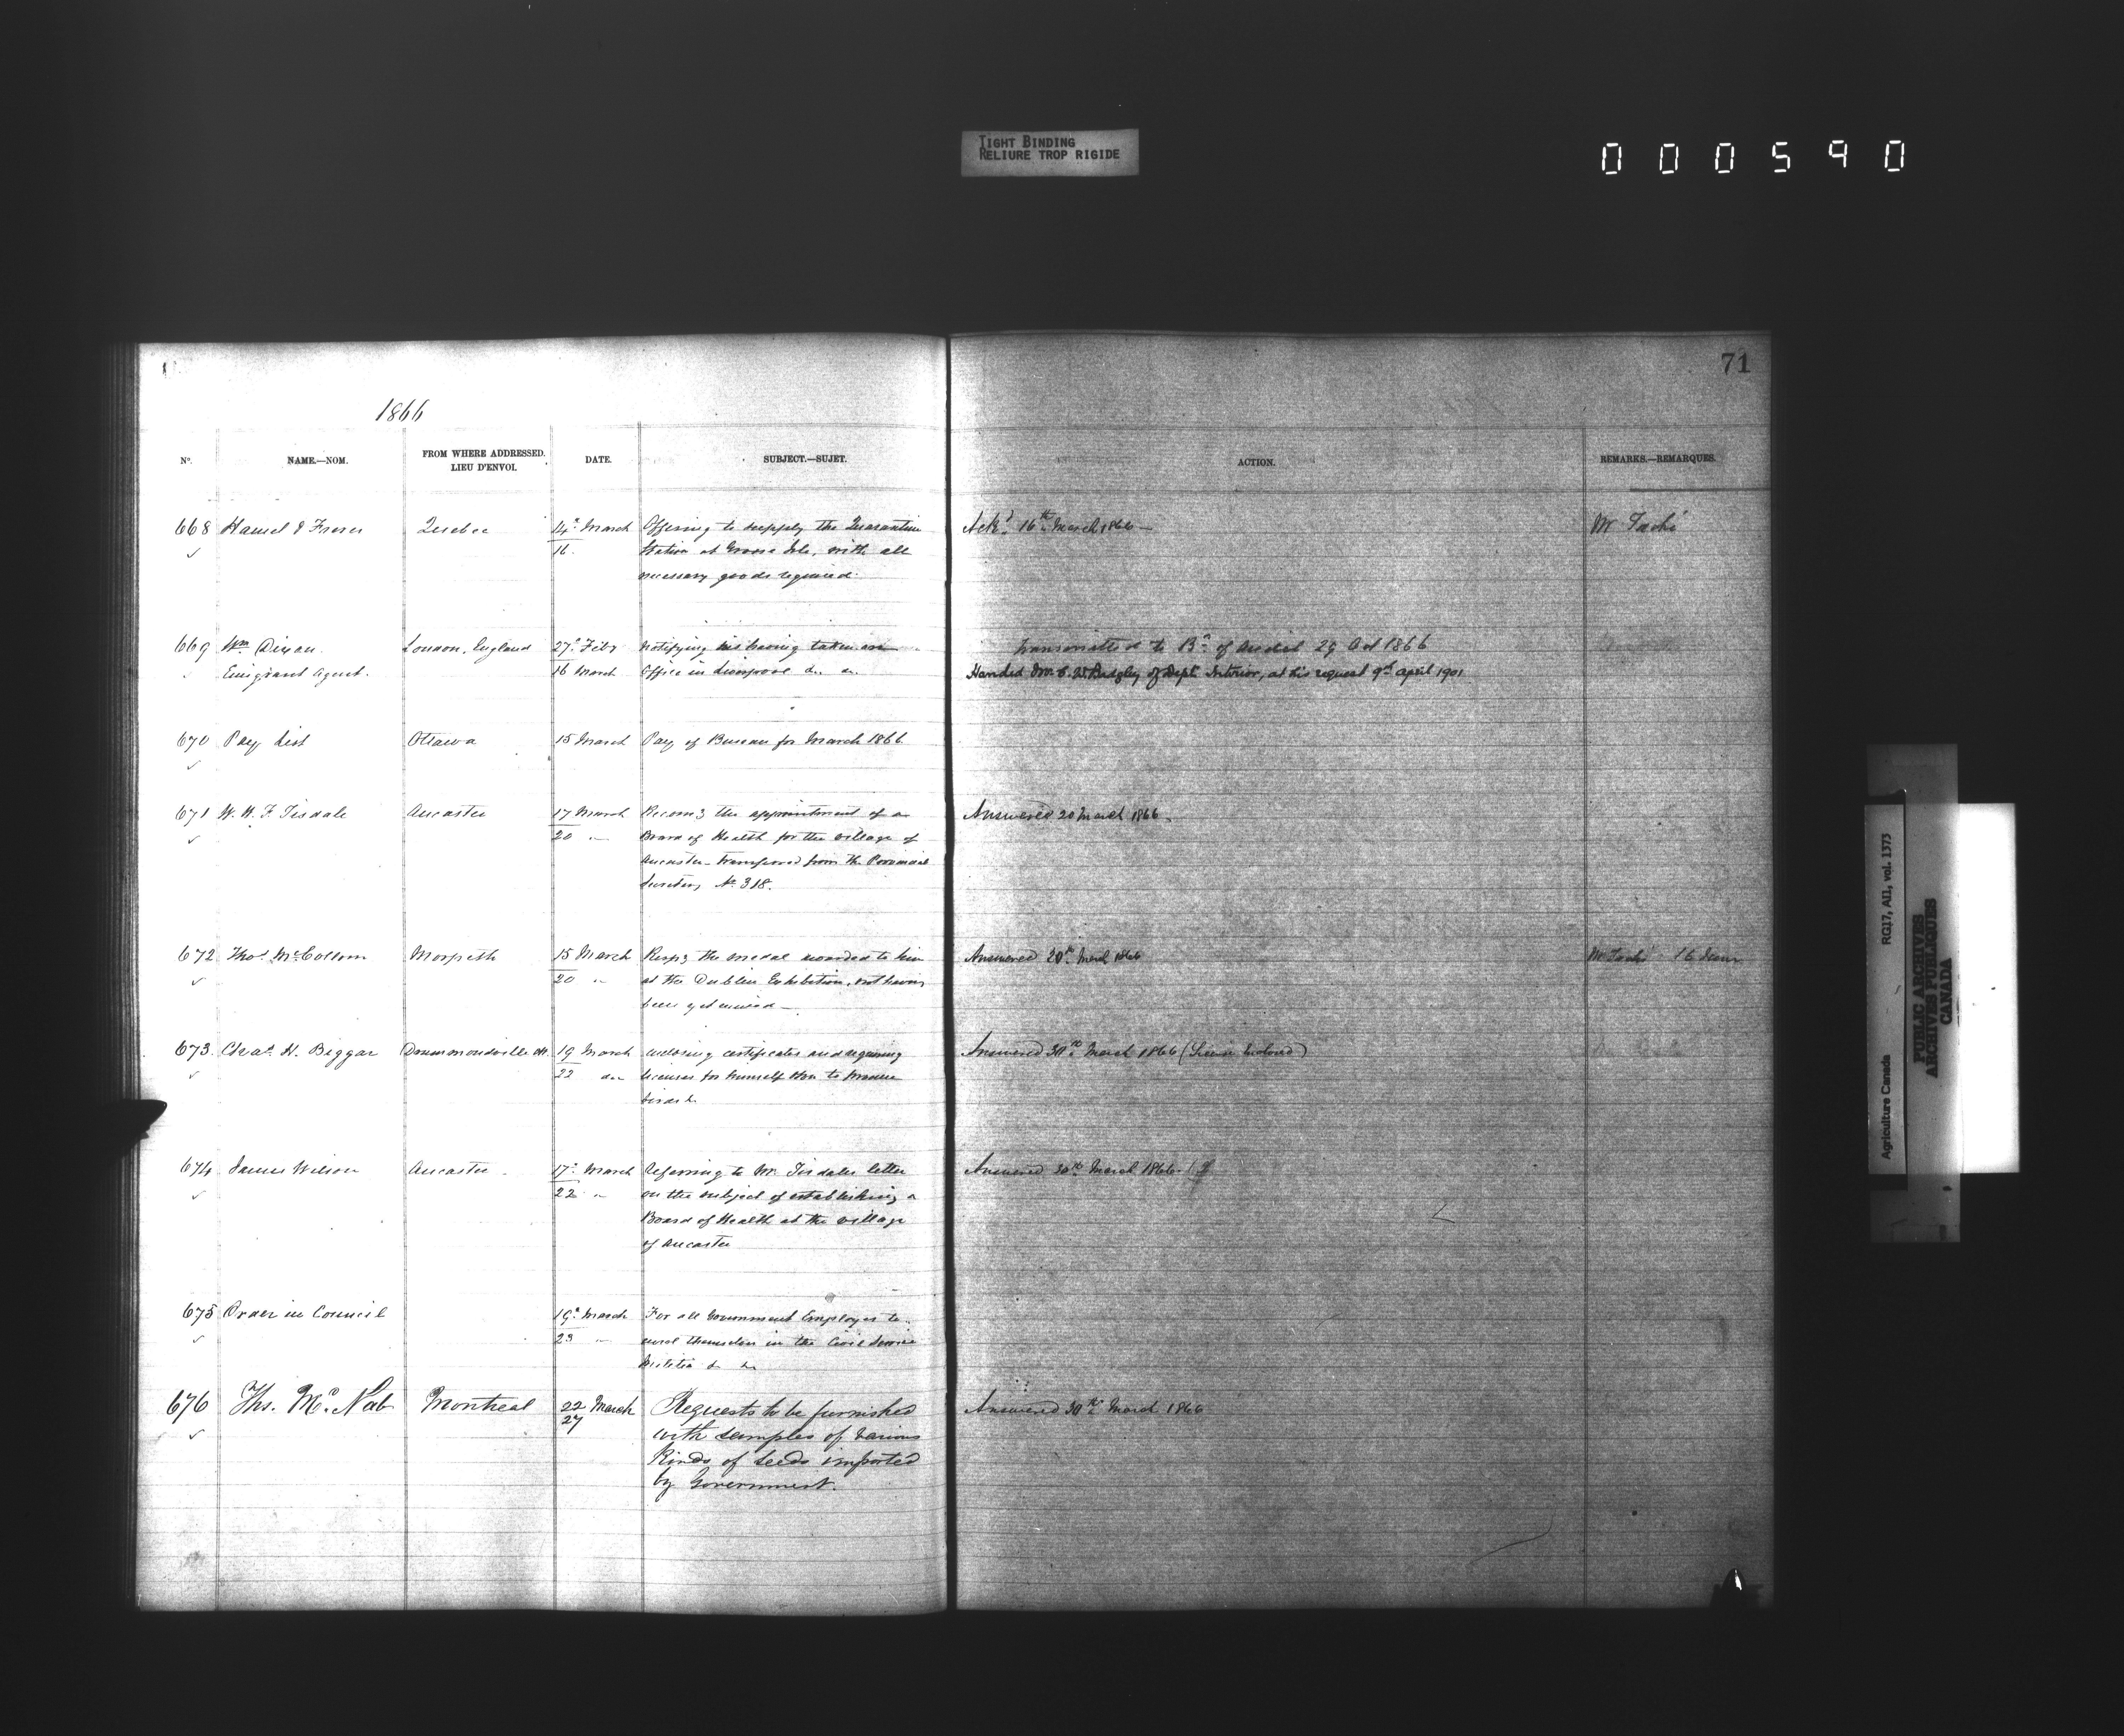 TIGHT BINDING
RELIURE TROP RIGIDE
000590
71
1866
No. NAME.—NOM. FROM WHERE ADDRESSED. LIEU D'ENVOI. DATE. SUBJECT.—SUJET. ACTION. REMARKS.—REMARQUES.
668 Hamel & Freres Quebec 14th March Offering to supply the Quarantine Ackd. 16th March 1866 — Mr Taché
16. Station at Grosse Isle, with all
necessary goods required.
669 Wm Dixon London, England 27th Feby Notifying his having taken an transmitted to Bd. of Audit 29 Oct 1866
Emigrant Agent. 16 March Office in Liverpool &c. &c. Handed Mr. C. W. Badgley of Dept. Interior, at his request 9th April 1901
670 Pay List Ottawa 15 March Pay of Bureau for March 1866
671 W. H. F. Tisdale Ancaster 17 March Recomg the appointment of a Answered 20 March 1866.
20 " Board of Health for the village of
Ancaster - transferred from the Provincial
Secretary No. 318.
672 Thos. McCollom Morpeth 15 March Respg the medal awarded to him Answered 20th March 1866 Mr Taché
20 " at the Dublin Exhibition, not having
been yet received —
673. Chas. H. Biggar Drummondville 19 March enclosing certificates and requiring Answered 30th March 1866 (License Enclosed)
22 do licenses for himself &
birds &.
674 James Wilson Ancaster 17th March Referring to Mr. Tisdales letter Answered 30th March 1866.
22 " on the subject of establishing a
Board of Health at the village
of Ancaster
675 Order in Council 19th March For all Government Employes to
23 " enrol themselves in the Civil Service
Militia & &c
676 Ths. Mc.Nab Montreal 22 March Requests to be furnished Answered 30th March 1866
27 with samples of various
Kinds of Seeds imported
by Government.
Agriculture Canada RG17, AII, vol. 1373
PUBLIC ARCHIVES
ARCHIVES PUBLIQUES
CANADA